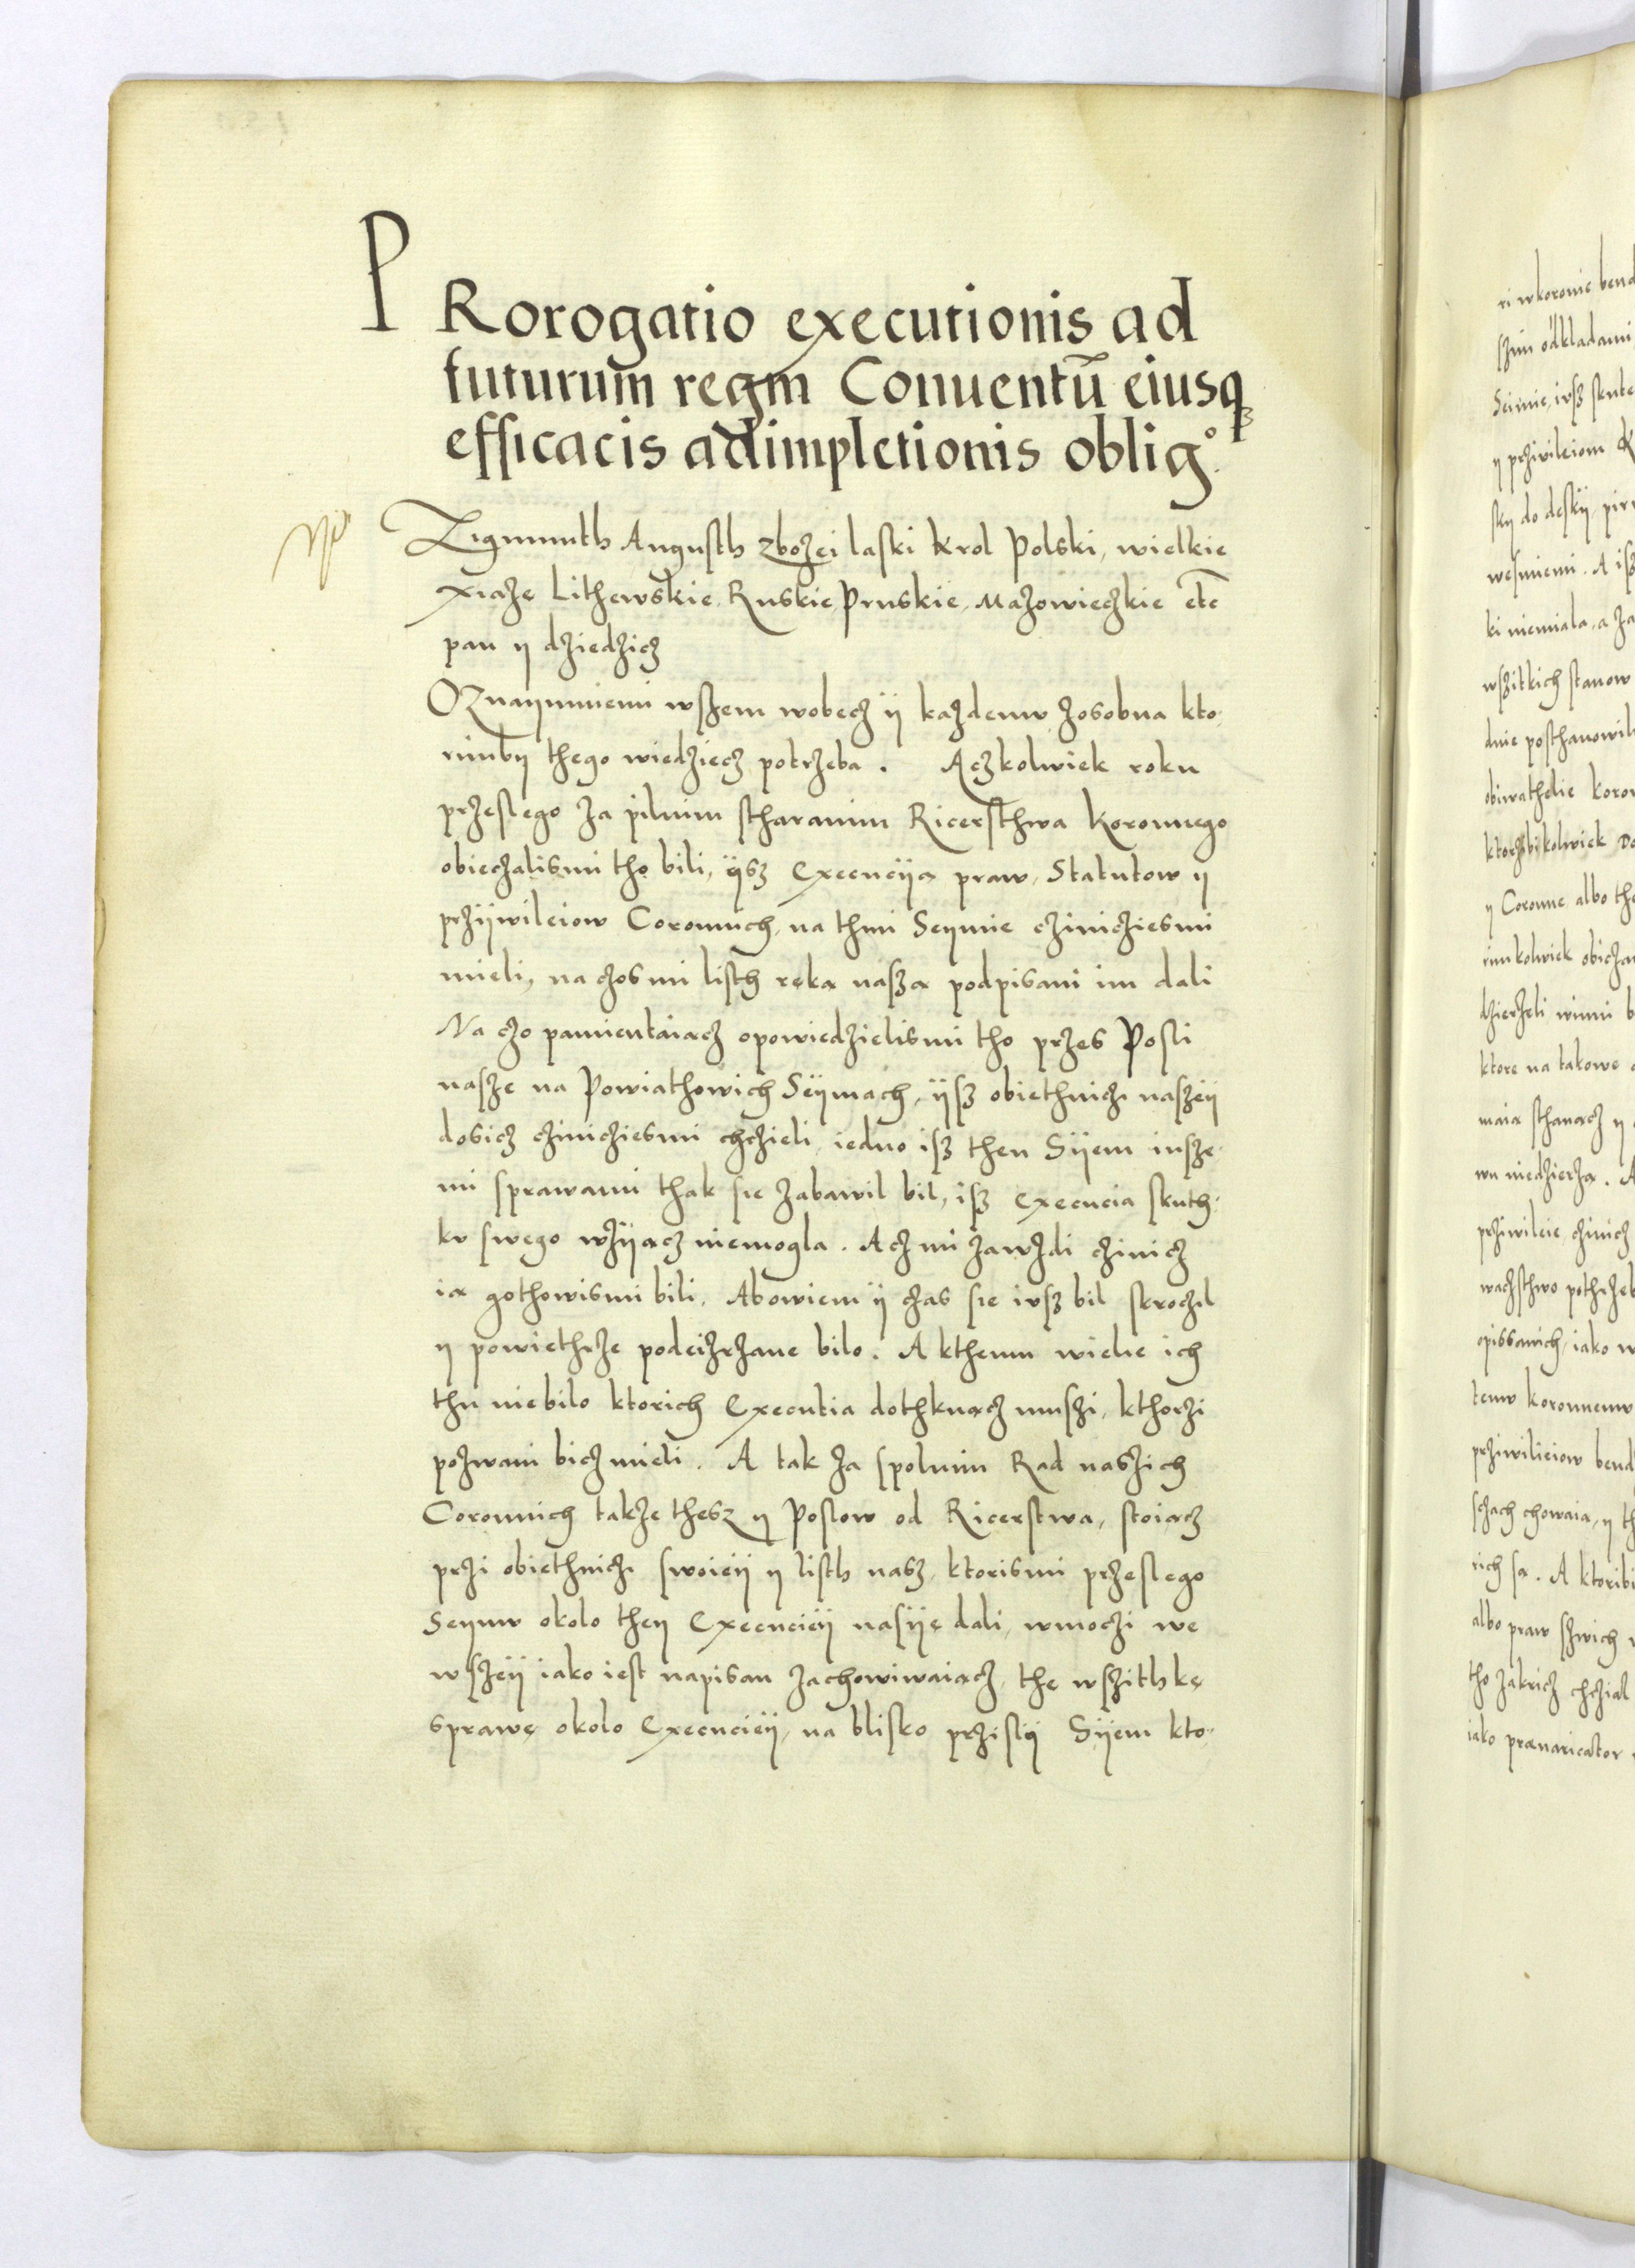 PRorogatio executionis ad
futurum regm Conuentũ eiusq
efficacis adimpletionis oblig°.
Zigmunth Augusth zbozei laski Krol Polski, wielkie
Xiaże Lithewskie, Ruskie, Pruskie, Mazowieczkie etc
pan y dziedzicz
OZnaymuiemi wszem wobecz ÿ kazdemw zosobna kto-
rimby thego wiedziecz potrzeba. Aczkolwiek roku
przeslego za pilnim stharanim Ricersthwa Koronnego
obieczalismi tho bili, ÿsz Execucÿa praw, Statutow y
przÿwileiow Coronnich, na thim Seymie czinicziesmi
mieli, na czosmi listh ręka nasza podpisani im dali
Na czo pamientaiacz opowiedzielismi tho przes Posli
nasze na Powiathowich Seÿmach, ÿsz obiethniczi naszeÿ
dosicz czinicziesmi chczieli, iedno isz then Sÿem insze-
mi sprawami thak sie zabawil bil, isz execucia skuth-
kv swego wzÿacz niemogla. Acz mi zawzdi czinicz
ia gothowismi bili, Abowiem ÿ czas sie ivsz bil skroczil
y powiethrze podeizrzane bilo. A kthemu wiele ich
thu niebilo ktorich Executia dothknacz muszi, kthorzi
pozwani bicz mieli. A tak za spolnim Rad naszich
Coronnich takze thesz y Poslow od Ricerstwa, stoiacz
przi obiethniczi swoieÿ y listh nasz, ktorismi przeslego
Seymw okolo they Execucieÿ nasÿe dali, wmoczi we
wszeÿ iako iest napisan zachowiwaiacz, thę wszithkę
sprawę okolo Execucieÿ, na blisko przislÿ Sÿem kto-
ri wkoronie bend
szim odkladami
Seimie, ivsz skute
y przivileiom K
sky do deskÿ, pirw
wesmiemi. A isz
ki niemiala, a za
wszitkich stanow
dnie posthanowil
obiwathelie koron
ktorzibikolwiek
y Coronne albo th
rimkolwiek obicza
dzierzeli winni b
ktore na takowe
maia sthanacz y
wu niedzierza. A
przivileie, czinicz
waczsthwo pothrzeb
opissanich, iako w
temw koronnemw
przivilieiow bend
szach chowaia, y th
rich sa. A ktoribi
albo praw szwich
tho zakricz chczial
iako prævaricator